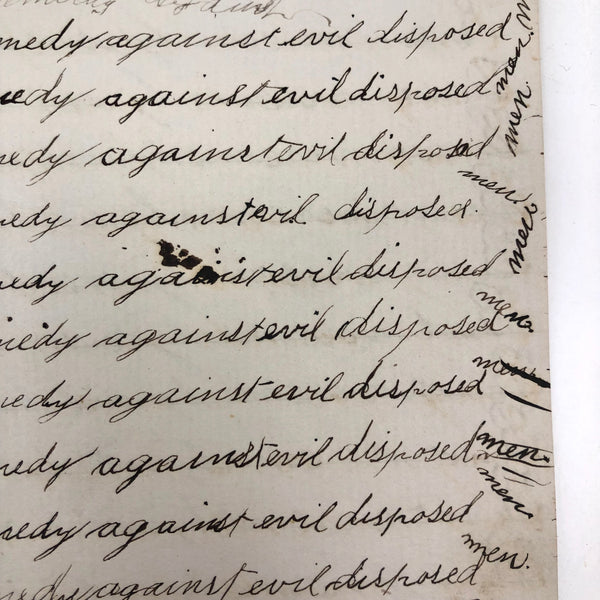 against
medy against evil disposed men.
edy against evil disposed men.
edy against evil disposed men.
edy against evil disposed. men.
edy against evil disposed men.
medy against evil disposed men.
edy against evil disposed men.
medy against evil disposed men.
nedy against evil disposed men.
edy against evil disposed men.